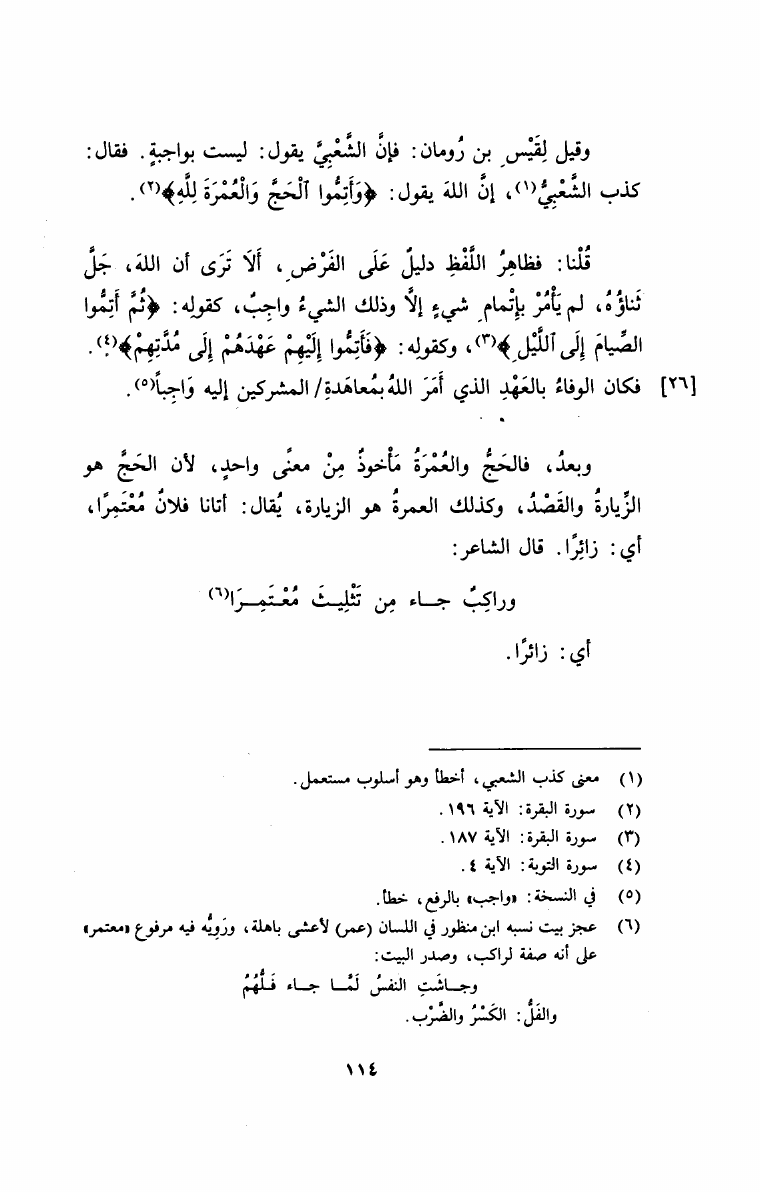 وقيل لِقَيْسِ بن رُومان: فإنَّ الشَّعْبِيَّ يقول: ليست بواجبةٍ. فقال:
كذب الشَّعْبِيُّ(١)، إنَّ اللهَ يقول: ﴿وَأَتِمُّوا ٱلْحَجَّ وَالْعُمْرَةَ لِلَّهِ﴾(٢).
قُلْنا: فظاهِرُ اللَّفْظِ دليلٌ عَلَى الفَرْضِ، أَلاَ تَرَى أن اللهَ، جَلَّ
ثَناؤُهُ، لم يَأْمُرْ بإتْمامِ شيءٍ إلاَّ وذلك الشيءُ واجِبٌ، كقولِه: ﴿ثُمَّ أَتِمُّوا
الصِّيامَ إِلَى اللَّيْلِ﴾(٣)، وكقولِه: ﴿فَأَتِمُّوا إِلَيْهِمْ عَهْدَهُمْ إِلَى مُدَّتِهِمْ﴾(٤).
[٢٦] فكان الوفاءُ بالعَهْدِ الذي أَمَرَ اللهُ بمُعاهَدةِ/ المشركين إليه وَاجِباً(٥).
وبعدُ، فالحَجُّ والعُمْرَةُ مَأْخوذٌ مِنْ معنًى واحدٍ، لأن الحَجَّ هو
الزِّيارةُ والقَصْدُ، وكذلك العمرةُ هو الزيارة، يُقال: أتانا فلانٌ مُعْتَمِرًا،
أي: زائِرًا. قال الشاعر:
وراكِبٌ جــاء مِن تَثْلِيـثَ مُعْـتَمِـرَا(٦)
أي: زائرًا.
(١) معنى كذب الشعبي، أخطأ وهو أسلوب مستعمل.
(٢) سورة البقرة: الآية ١٩٦.
(٣) سورة البقرة: الآية ١٨٧.
(٤) سورة التوبة: الآية ٤.
(٥) في النسخة: «واجب» بالرفع، خطأ.
(٦) عجز بيت نسبه ابن منظور في اللسان (عمر) لأعشى باهلة، ورَوِيُّه فيه مرفوع «معتمر»
على أنه صفة لراكب، وصدر البيت:
وجـاشَتِ النفسُ لَمَّـا جـاء فَـلُّهُمُ
والفَلُّ: الكَسْرُ والضَّرْب.
١١٤